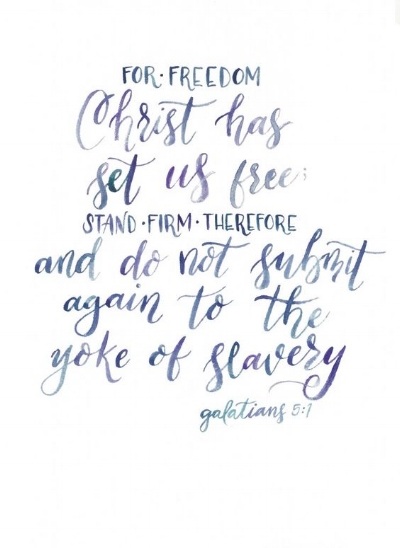 FOR·FREEDOM
Christ has
set us free;
STAND·FIRM·THEREFORE
and do not submit
again to the
yoke of slavery
galatians 5:1